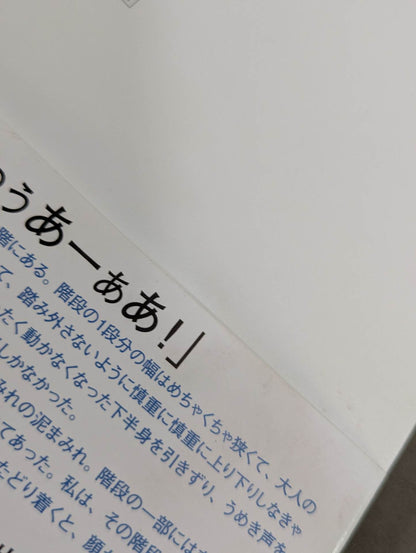 うあーぁあ!」
階にある。階段の1段分の幅はめちゃくちゃ狭くて、大人の
て、踏み外さないように慎重に慎重に上り下りしなきゃ
たく動かなくなった下半身を引きずり、うめき声を
しかなかった。
みれの泥まみれ。階段の一部には
てあった。私は、その階段
たどり着くと、